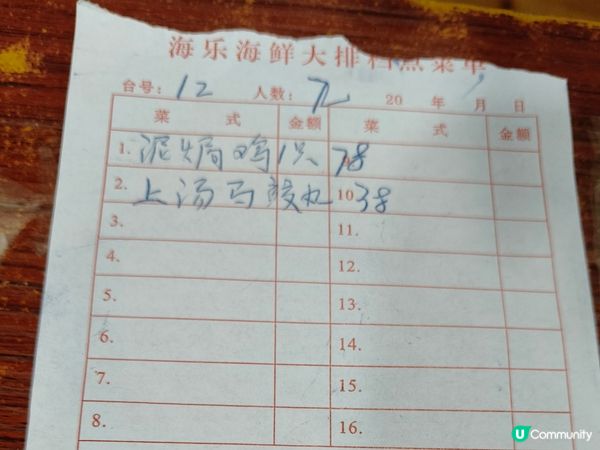 海乐海鲜大排档点菜单
台号: 12 人数: 九 20 年 月 日
菜 式 金额 菜 式 金额
1. 泥焗鸡1只 78
2. 上汤马鲛丸 10 38
3. 11.
4. 12.
5. 13.
6. 14.
7. 15.
8. 16.
U Community